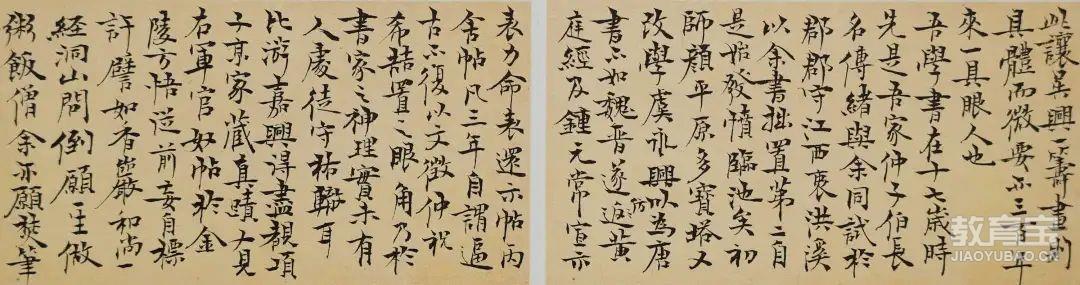 此讓吳興一籌畫則
具體而微要亦三百年
來一具眼人也
吾學書在十七歲時
先是吾家仲子伯長
名傳緒與余同試於
郡郡守江西衷洪溪
以余書拙置第二自
是始發憤臨池矣初
師顏平原多寶塔又
改學虞永興以為唐
書不如魏晉遂仿黃
庭經及鍾元常宣示
表力命表還示帖丙
舍帖凡三年自謂逼
古不復以文徵仲祝
希喆置之眼角乃於
書家之神理實未有
入處徒守格轍耳
比游嘉興得盡覩項
子京家藏真蹟又見
右軍官奴帖於金
陵方悟從前妄自標
許譬如香巖和尚一
經洞山問倒願一生做
粥飯僧余亦願焚筆
教育宝
JIAOYUBAO.CN